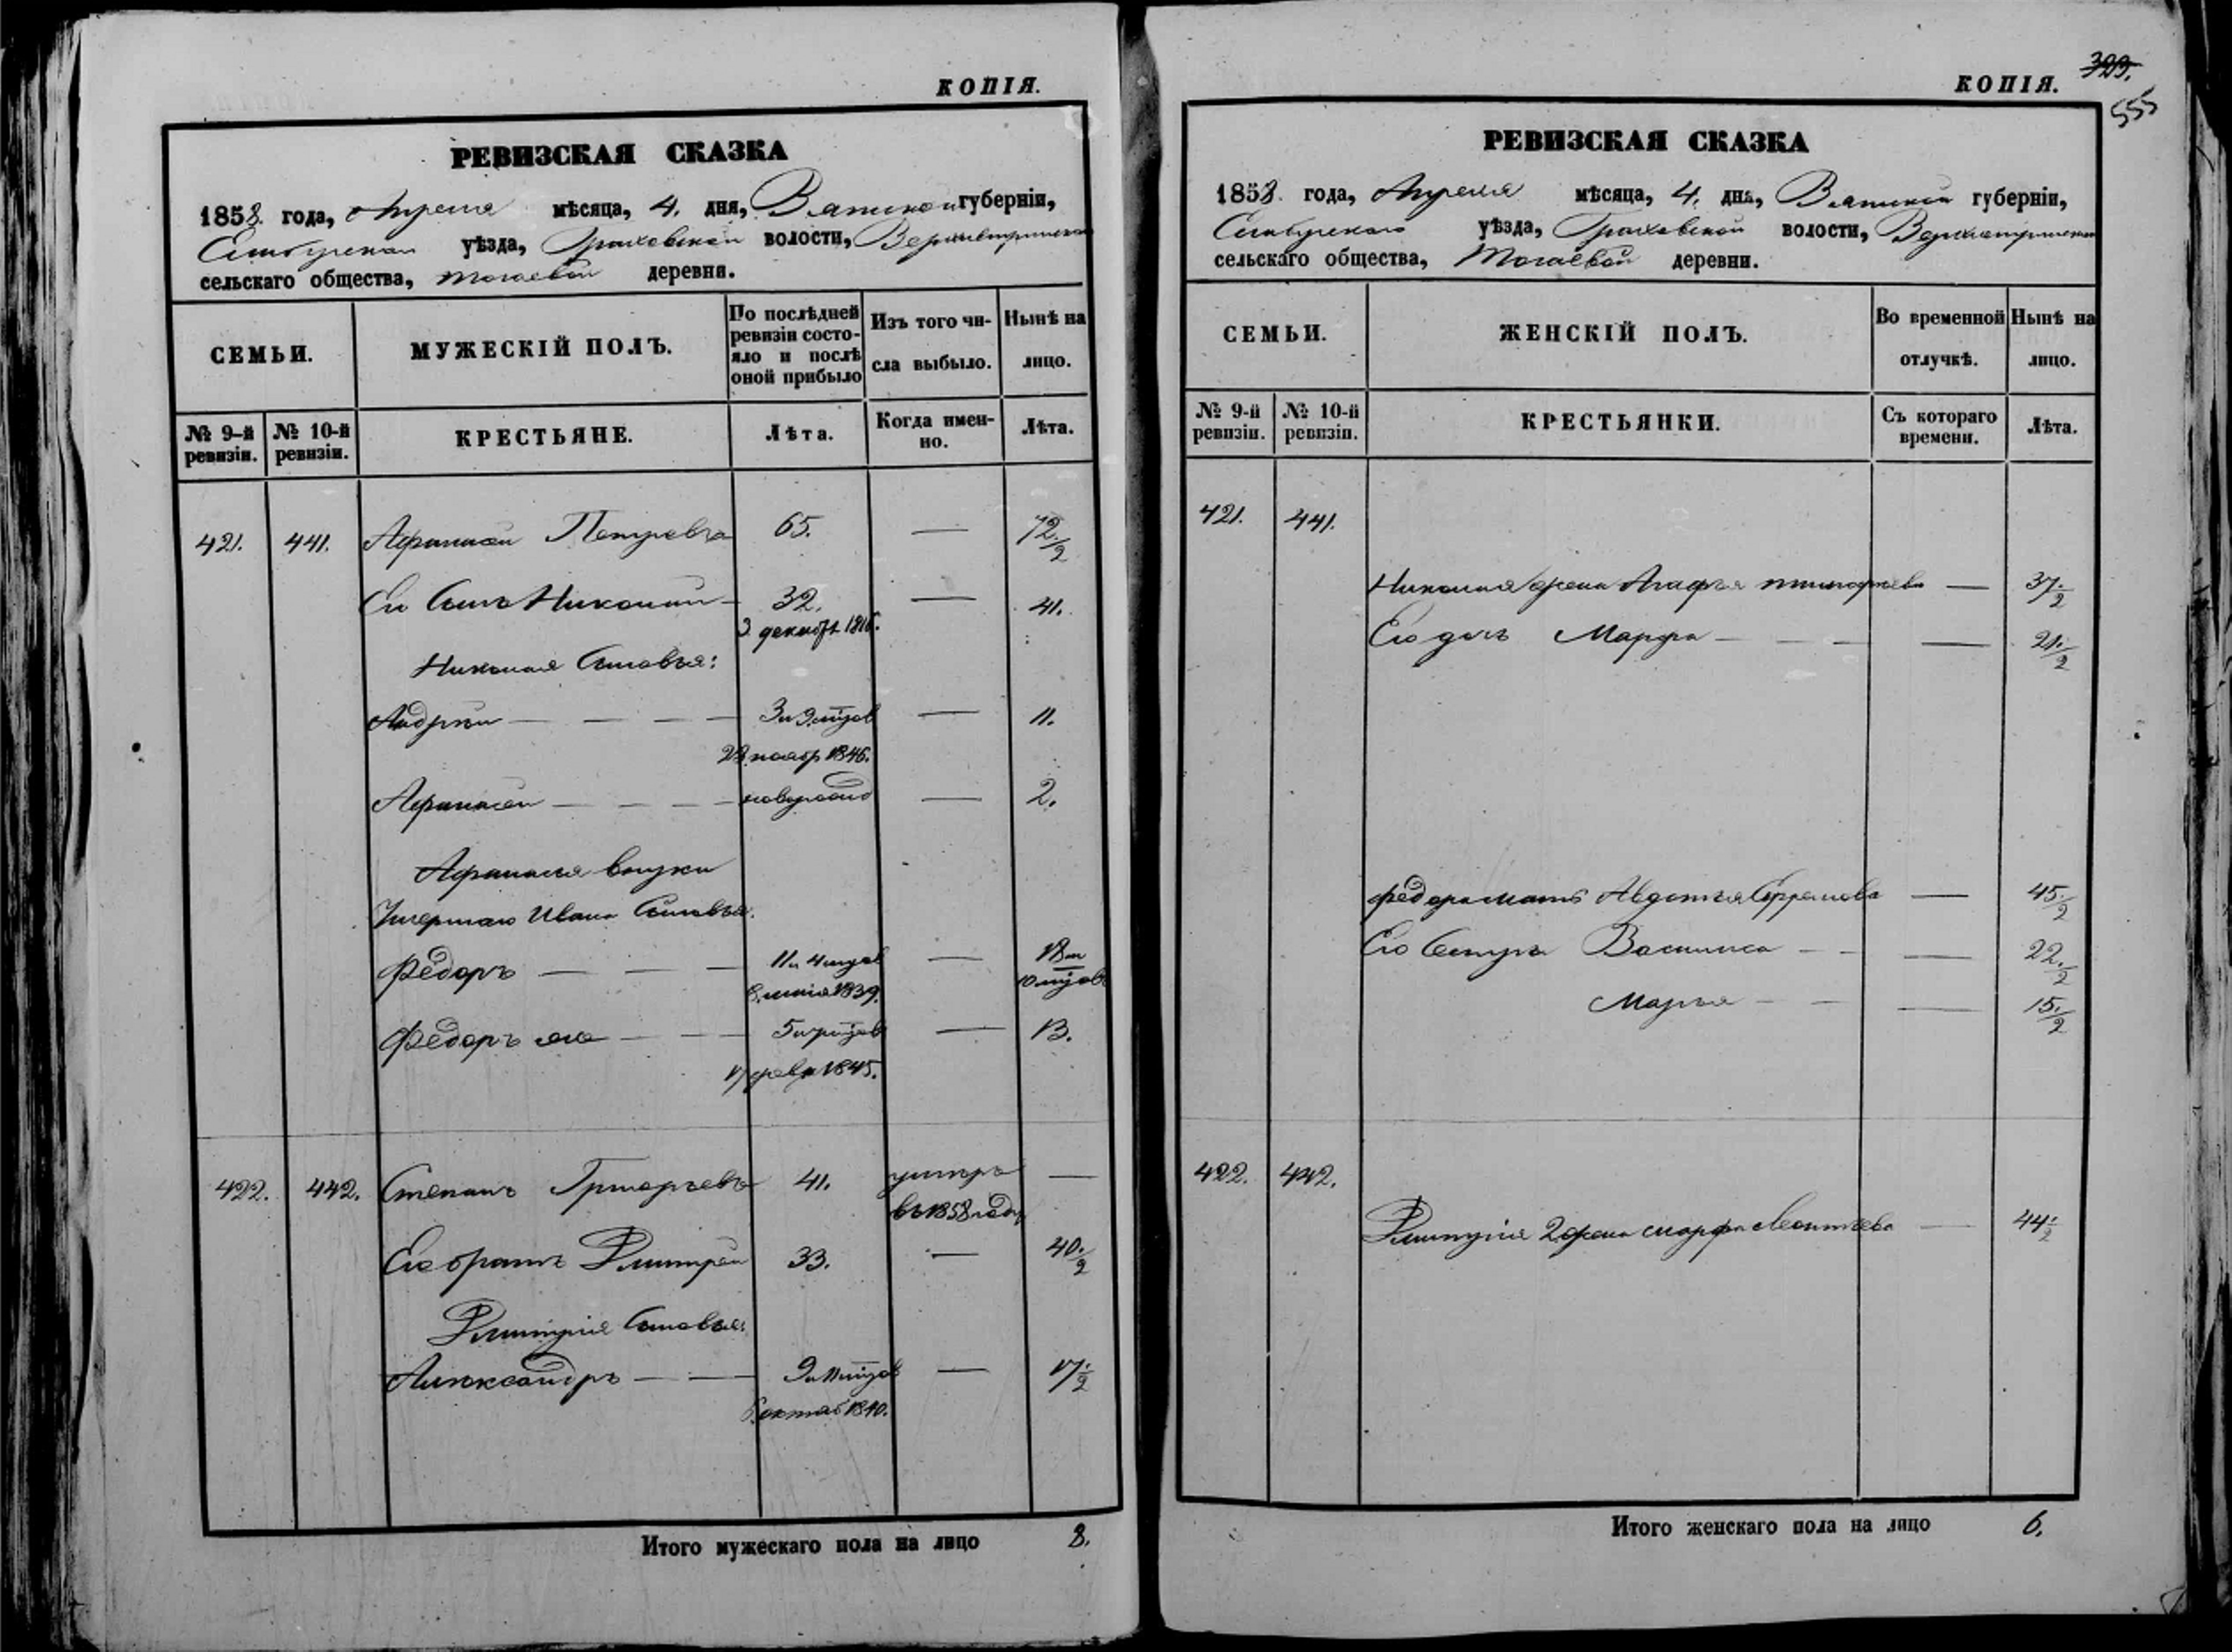 КОПІЯ.
РЕВИЗСКАЯ СКАЗКА
1858. года, Апреля мѣсяца, 4. дня, Вятской губерніи,
уѣзда, Граховской волости,
сельскаго общества, деревни.
СЕМЬИ.
МУЖЕСКІЙ ПОЛЪ.
По послѣдней ревизіи состо-
яло и послѣ оной прибыло
Изъ того чи-
сла выбыло.
Нынѣ на
лицо.
№ 9-й ревизіи.
№ 10-й ревизіи.
КРЕСТЬЯНЕ.
Лѣта.
Когда имен-
но.
Лѣта.
421. 441. Афанасей Петровъ 65. — 72 1/2
Ево Сынъ Николай 32. — 41.
3 декабр
Николая Сыновья:
Андрей — — — 3 и 9 мцов — 11.
ноябр 1846.
Афанасей — — — — 2.
Афанасья внуки
Умершаго Ивана Сыновья.
Федоръ — — — 11 и 4 мцов — 18 и
1839. 10 мцов
Федоръ — — —  13.
17 февр 1845.
422. 442. Степанъ Григорьевъ 41. умеръ —
въ 1858 году
Ево братъ Дмитрей 33. — 40. 1/2
Дмитрія Сыновья:
Александръ — — 9 и 11 мцов — 17 1/2
октяб 1840.
Итого мужескаго пола на лицо 8.
КОПІЯ.
555
РЕВИЗСКАЯ СКАЗКА
1858. года, Апреля мѣсяца, 4. дня, Вятской губерніи,
уѣзда, Граховской волости,
сельскаго общества, деревни.
СЕМЬИ.
ЖЕНСКІЙ ПОЛЪ.
Во временной
отлучкѣ.
Нынѣ на
лицо.
№ 9-й ревизіи.
№ 10-й ревизіи.
КРЕСТЬЯНКИ.
Съ котораго
времени.
Лѣта.
421. 441.
Николая жена Агафья Тимофеева — 37. 1/2
Ево дочь Марфа — — — — 21. 1/2
Федора мать Авдотья Ефремова — 45. 1/2
Ево Сестры Василиса — — — 22. 1/2
Марья — — — 15. 1/2
422. 442.
Дмитрія 2 жена Марфа Леонтьева — 44. 1/2
Итого женскаго пола на лицо 6.